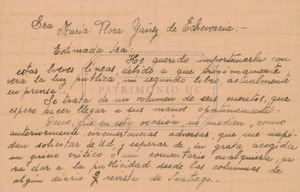 Sra María Flora Yáñez de Echeverría:—
Estimada Sra:
He querido importunarla con
estas breves líneas, debido a que próximamente
verá la luz pública mi segundo libro, actualmente
en prensa.
PATRIMONIO UC
Se trata de un volumen de seis cuentos, que
espero hacer llegar a sus manos oportunamente.
Deseo, que en esta ocasión no medien, como
anteriormente, circunstancias adversas, que me impi-
dan solicitar de Ud, y esperar, de su grata acogida
un juicio crítico o un comentario cualquiera, pa-
ra dar a la publicidad desde las columnas de
algún diario o revista de Santiago.—